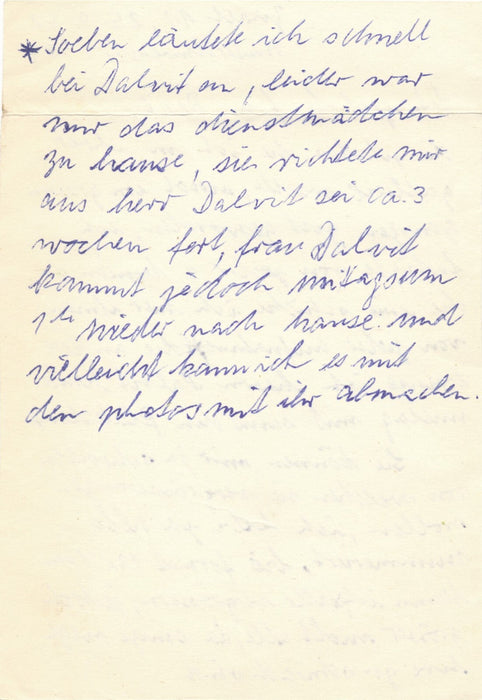 * Soeben läutete ich schnell
bei Dalvit an, leider war
nur das dienstmädchen
zu hause, sie richtete mir
aus herr Dalvit sei ca. 3
wochen fort, frau Dalvit
kommt jedoch mittags um
1h wieder nach hause und
vielleicht kann ich es mit
den photos mit ihr abmachen.